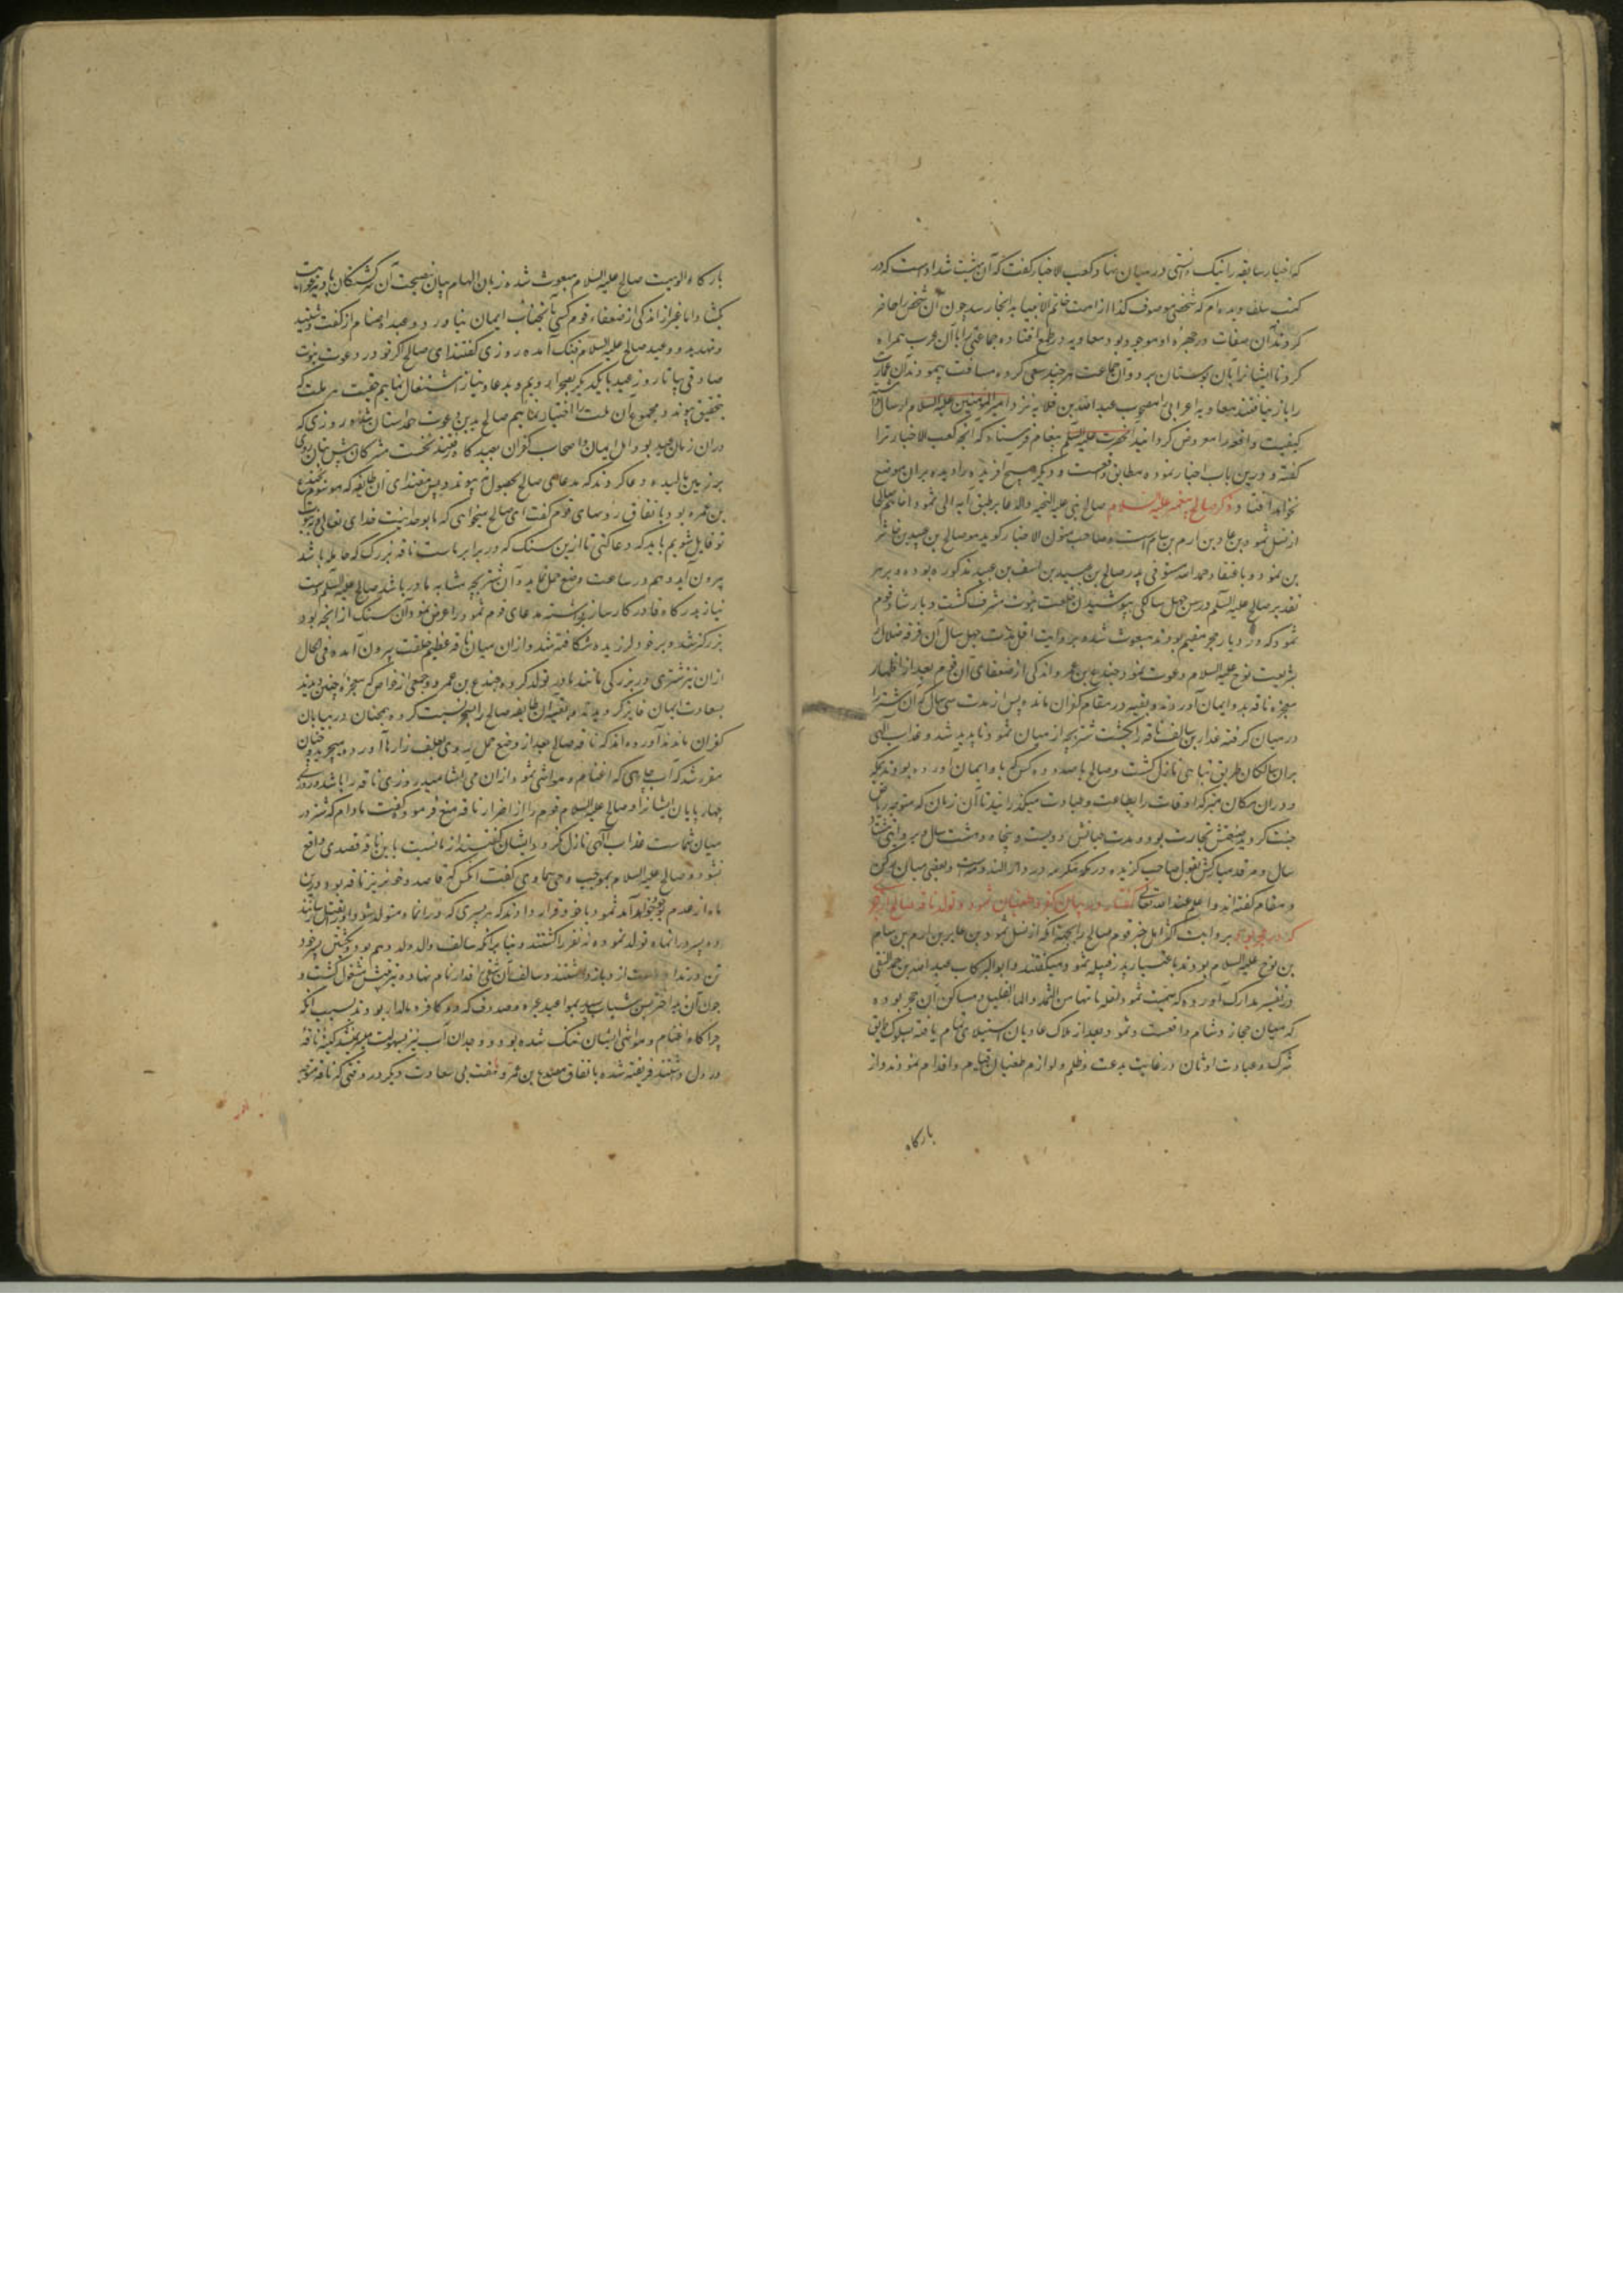 که اخبار سابقه را نیک دانستی در میان نهاد کعب الاخبار گفت که آن بهشت شداد است که در
کتب سلف دیده‌ام که شخصی موصوف کذا از امت خاتم الانبیا به انجا رسد چون آن شخص را حاضر
کردند آن صفات در چهره او موجود بود معاویه در طمع افتاده جماعتی را با آن عرب همراه
کرد تا ایشانرا بآن بوستان برد و آن جماعت هر چند سعی کرده مسافت پیمودند آن عمارت
را باز نیافتند معاویه اعرابی را مصحوب عبد الله بن قلابه نزد امیر المؤمنین علیه السلام ارسال داشته
کیفیت واقعه را معروض گردانید آنحضرت علیه السلم پیغام فرستاد که آنچه کعب الاخبار ترا
گفته و درین باب اخبار نموده مطابق واقعست و دیگر هیچ آفریده را دیده بران موضع
نخواهد افتاد ذکر صالح پیغمبر علیه السلام صالح نبی علیه التحیه والدعا بر طبق آیه الی ثمود اخاهم صالحا
از نسل ثمود بن عاد بن ارم بن سام است و صاحب متون الاخبار گوید هو صالح بن عبید بن
بن ثمود و باعتقاد حمد الله مستوفی پدر صالح بن عبید بن اسف بن عبید مذکوره بوده و بر هر
تقدیر صالح علیه السلم در سن چهل سالگی بپوشیدن خلعت نبوت مشرف گشت و بارشاد قوم
ثمود که در دیار حجر مقیم بودند مبعوث شده بروایت اقل مدت چهل سال آن فرقه ضلال را
بشریعت نوح علیه السلام دعوت نمود و جندع بن عمرو اندکی از ضعفای آن قوم بعد از اظهار
معجزه ناقه بدو ایمان آوردند و بقیه در مقام کفران مانده پس از مدت سی سال که آن شتر را
در میان گرفته قدار بن سالف ناقه را بکشت شتربچه از میان ثمود ناپدید شد و عذاب الهی
بران سالکان طریق تباهی نازل گشت و صالح با صد و ده کس که باو ایمان آورده بودند بمکه
و دران مکان متبرک اوقات را بطاعت و عبادت میگذرانید تا آن زمان که متوجه ریاض
جنت گردید صنعتش تجارت بود و مدت حیاتش دویست و پنجاه و هشت سال و بروایتی هشتاد
سال و مرقد مبارکش بقول صاحب گزیده در مکه مکرمه در دار الندوه است و بعضی میان رکن
و مقام گفته‌اند والعلم عند الله تعالی گفتار در بیان کفر و طغیان ثمود و تولد ناقه صالح از حجر
که در حجر بود بروایت اکثر اهل خبر قوم صالح را بجهة آنکه از نسل ثمود بن عابر بن ارم بن سام
بن نوح علیه السلام بودند باعتبار پدر قبیله ثمود میگفتند و ابو البرکات عبد الله بن احمد النسفی
در تفسیر مدارک آورده که سمیت ثمود لقلة مائها من الثمد و الماء القلیل و مساکن آن حجر بوده
که میان حجاز و شام واقعست و ثمود بعد از هلاک عادیان استیلای تمام یافته بسلوک طریق
شرک و عبادت اوثان در غایت بدعت و ظلم و لوازم طغیان قیام و اقدام نمودند و از
بارگاه
بارگاه الوهیت صالح علیه السلام مبعوث شده زبان الهام بیان بنصیحت آن گمگشتگان بادیه غوایت
بگشاد اما غیر از اندکی از ضعفاء قوم کسی بآنجناب ایمان نیاورد و عبده اصنام از گفت و شنید
و تهدید و وعید صالح علیه السلام بتنگ آمده روزی گفتند ای صالح اگر تو در دعوت نبوت
صادقی بیا تا روز عید با یکدیگر بصحرا رویم و بدعا و نیاز اشتغال نماییم حقیت هر ملت که
بتحقیق پیوندد مجموع آن ملت را اختیار نماییم صالح بدین دعوت همداستان شده روزی که
دران زمان عید بود اهل ایمان و اصحاب کفران بعیدگاه رفتند نخست مشرکان پیش بتان روی
بر زمین مالیده دعا کردند که مدعای صالح بحصول نه پیوندد پس مقتدای آن طایفه که موسوم بجندع
بن عمرو بود باتفاق رؤسای قوم گفت ای صالح میخواهی که ما بوحدانیت خدای تعالی و نبوت
تو قایل شویم باید که دعا کنی تا ازین سنگ که در برابر ماست ناقه بزرگ که حامله باشد
بیرون آید و هم در ساعت وضع حمل نماید و آن شتربچه مشابه مادر باشد صالح علیه السلم دست
نیاز بدرگاه قادر کارساز برداشته مدعای قوم ثمود را عرض نمود آن سنگ از آنچه بود
بزرگتر شد و بر خود لرزیده شکافته شد و ازان میان ناقه عظیم خلقت بیرون آمده فی الحال
ازان نیز شتری در بزرگی مانند مادر تولد کرده جندع بن عمرو و جمعی از خواص که معجزه چنین دیدند
بسعادت ایمان فایز گردیدند و بقیه آن طایفه صالح را بسحر نسبت کرده همچنان در بیابان
کفران ماندند آورده‌اند که ناقه صالح بعد از وضع حمل روی بعلف زارها آورده میچرید و چنان
مقرر شد که آب چاهی که اغنام و مواشی ثمود ازان می آشامید روزی ناقه را باشد و روزی
چهارپایان ایشانرا و صالح علیه السلام قوم را از اضرار ناقه منع فرمود و گفت مادام که شتر در
میان شماست عذاب الهی نازل نگردد ایشان گفتند از ما نسبت باین ناقه قصدی واقع
نشود صالح علیه السلام بموجب وحی سماوی گفت آنکس که قاصد خونریز ناقه بود درین
ماه از عدم بوجود آید ثمود با خود قرار دادند که هر پسری که درانماه متولد شود او را بقتل رسانند
و ده پسر درانماه تولد نموده نه نفر را کشتند و بنابر آنکه سالف والد ولد دهم بود بکشتن پسر خود
تن در نداد دست ازو باز داشتند و سالف آن شقی را قدار نام نهاده بتربیتش مشغول گشت و
چون آن بد اختر بسن شباب رسید بمواعید عنیزه و صدوف که دو کافره مالدار بودند بسبب آنکه
چراگاه اغنام و مواشی ایشان تنگ شده بود و وجدان آب نیز بسهولت میسر نمیشد کینه ناقه
در دل داشتند فریفته شده باتفاق مصدع بن عمرو و هفت بی سعادت دیگر در وقتی که ناقه متوجه